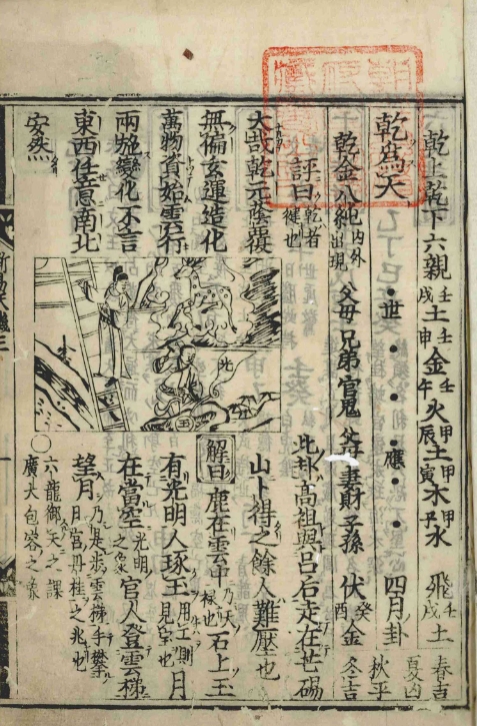 乾上乾下六親 壬戌土 壬申金 壬午火 甲辰土 甲寅木 甲子水 飛 壬戌土 春吉 夏凶
乾為天 世 應 四月卦 秋平
乾金八純 内外出現 父母 兄弟 官鬼 父母 妻財 子孫 伏 癸酉金 冬吉
評曰 乾者健也 此卦髙祖與呂后走在芒碭
大哉乾元蔭覆 山卜得之餘人難壓也
無偏玄運造化 解曰 鹿在雲中 乃天禄也 石上玉
萬物資始雲行 有光明人琢玉 用工則見宝也 月
雨施變化不言 在當空 光明之象 官人登雲梯
東西任意南北 望月 乃是步雲梯手攀月宮丹桂之兆也
安然 〇 六龍御天之課
廣大包容之象
北
玉